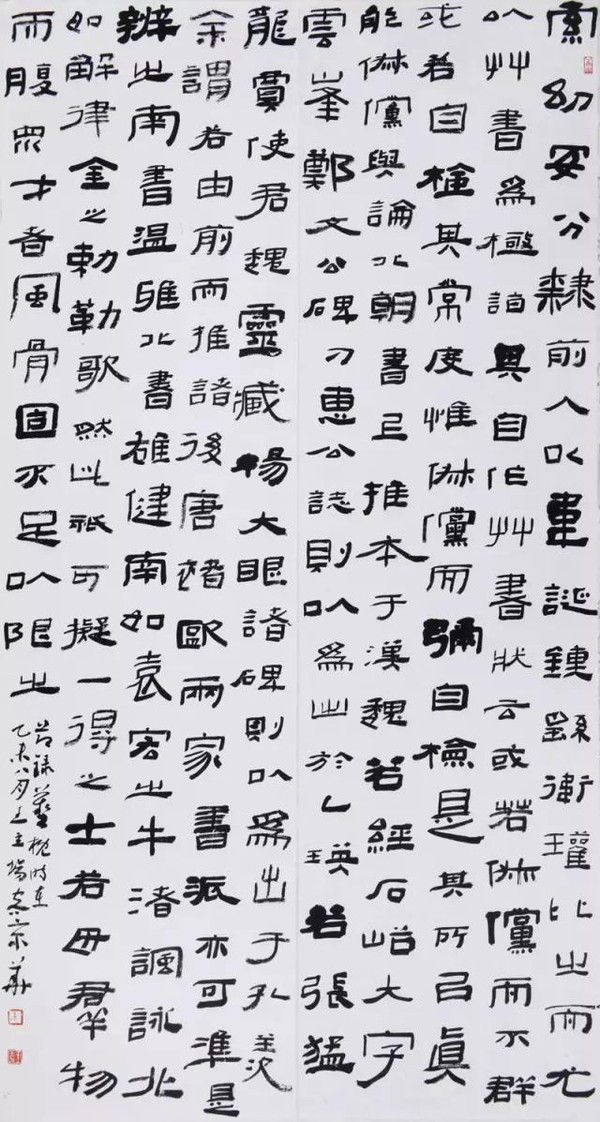 索幼安分隸前人以韋誕鍾繇衛瓘比之而尤
以艸書為極詣其自作艸書狀云或若俶儻而不群
或若自檢其常度惟俶儻而彌自檢是其所以真
能俶儻與論北朝書上推本于漢魏若經石峪大字
雲峯鄭文公碑刁惠公誌則以為出於乙瑛若張猛
龍賈使君魏靈藏楊大眼諸碑則以為出于孔羨
余謂若由前而推諸後唐褚歐兩家書派亦可準是
辨之南書溫雅北書雄健南如袁宏之牛渚諷詠北
如斛律金之勅勒歌然此祇可擬一得之士若母群物
而腹眾才者風骨固不足以限之
節錄藝概時在
乙未八月